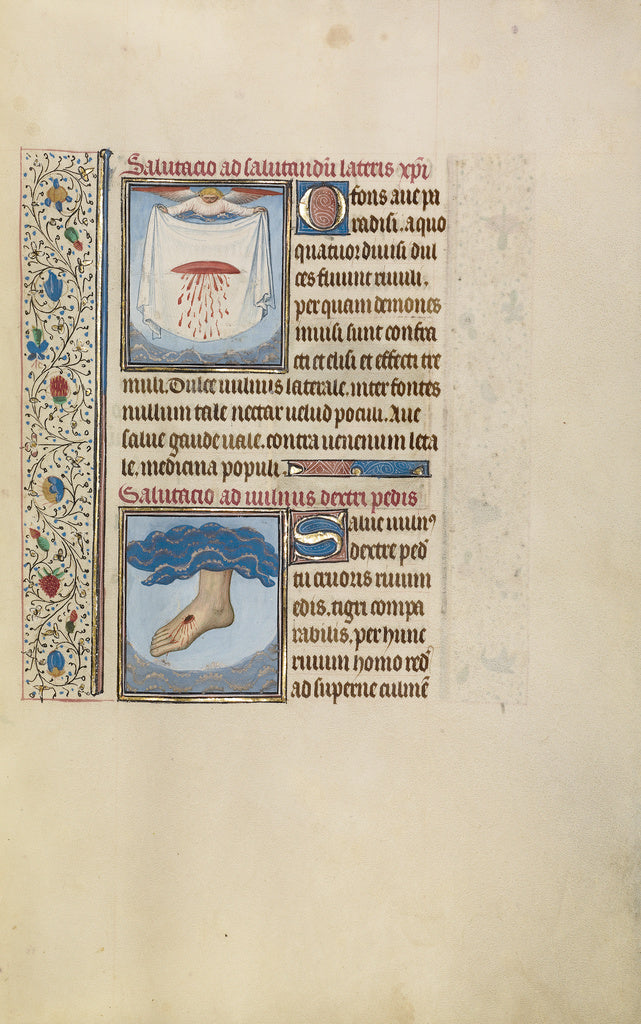 Salutacio ad salutandū lateris xp̄i
O fons aue pa
radisi. a quo
quatuor diuisi dul
ces fluunt riuuli.
per quam demones
inuisi sunt confra
cti et elisi et effecti tre
muli. Dulce uulnus laterale. inter fontes
nullum tale nectar uelud poculi. Aue
salue gaude uale. contra uenenum leta
le. medicina populi.
Salutacio ad uulnus dextri pedis
Salue uuln⁹
dextre ped
tu cruoris riuum
edis. tigri compa
rabilis. per hunc
riuum homo red
ad superne culmē